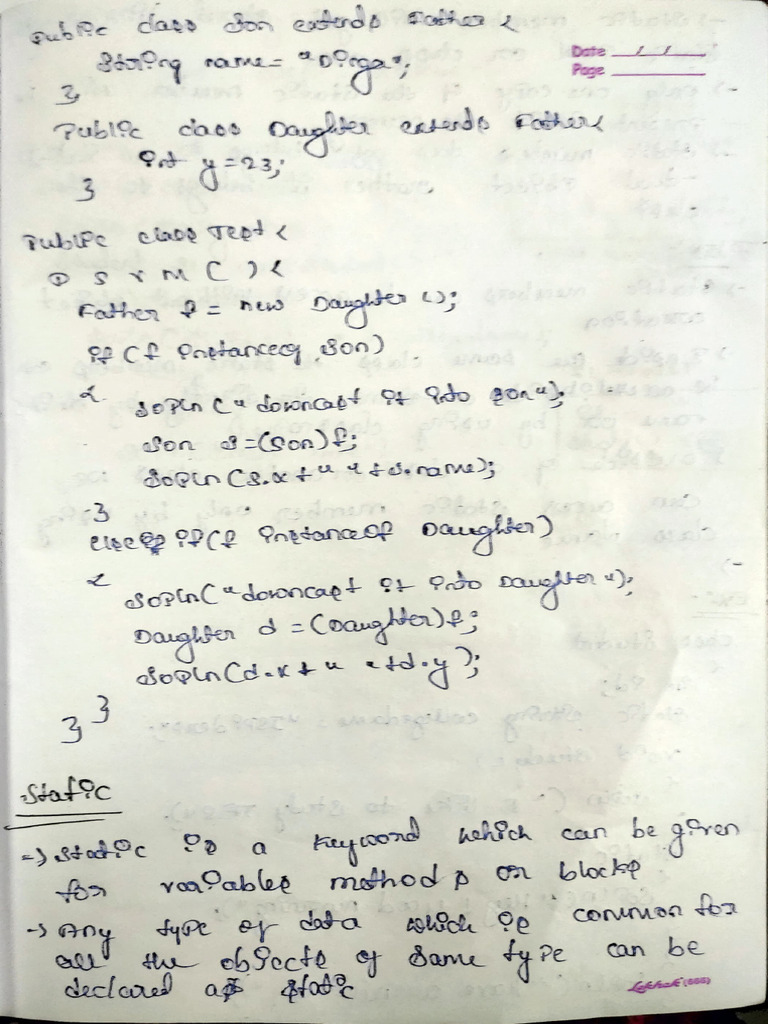 Public class Son extends Father {
String name = "Dinga";
}
Date __/__/__
Page
Public class Daughter extends Father {
int y = 23;
}
Public class Test {
P S V M ( ) {
Father f = new Daughter ();
if (f instanceof Son)
{ SOPln ("downcast it into son");
Son s = (Son) f;
SOPln (s.x + " " + s.name);
}
else if (f instanceof Daughter)
{ SOPln ("downcast it into Daughter");
Daughter d = (Daughter) f;
SOPln (d.x + " " + d.y);
}
}
Static
=> Static is a keyword which can be given
for variables methods or blocks
-> Any type of data which is common for
all the objects of same type can be
declared as static